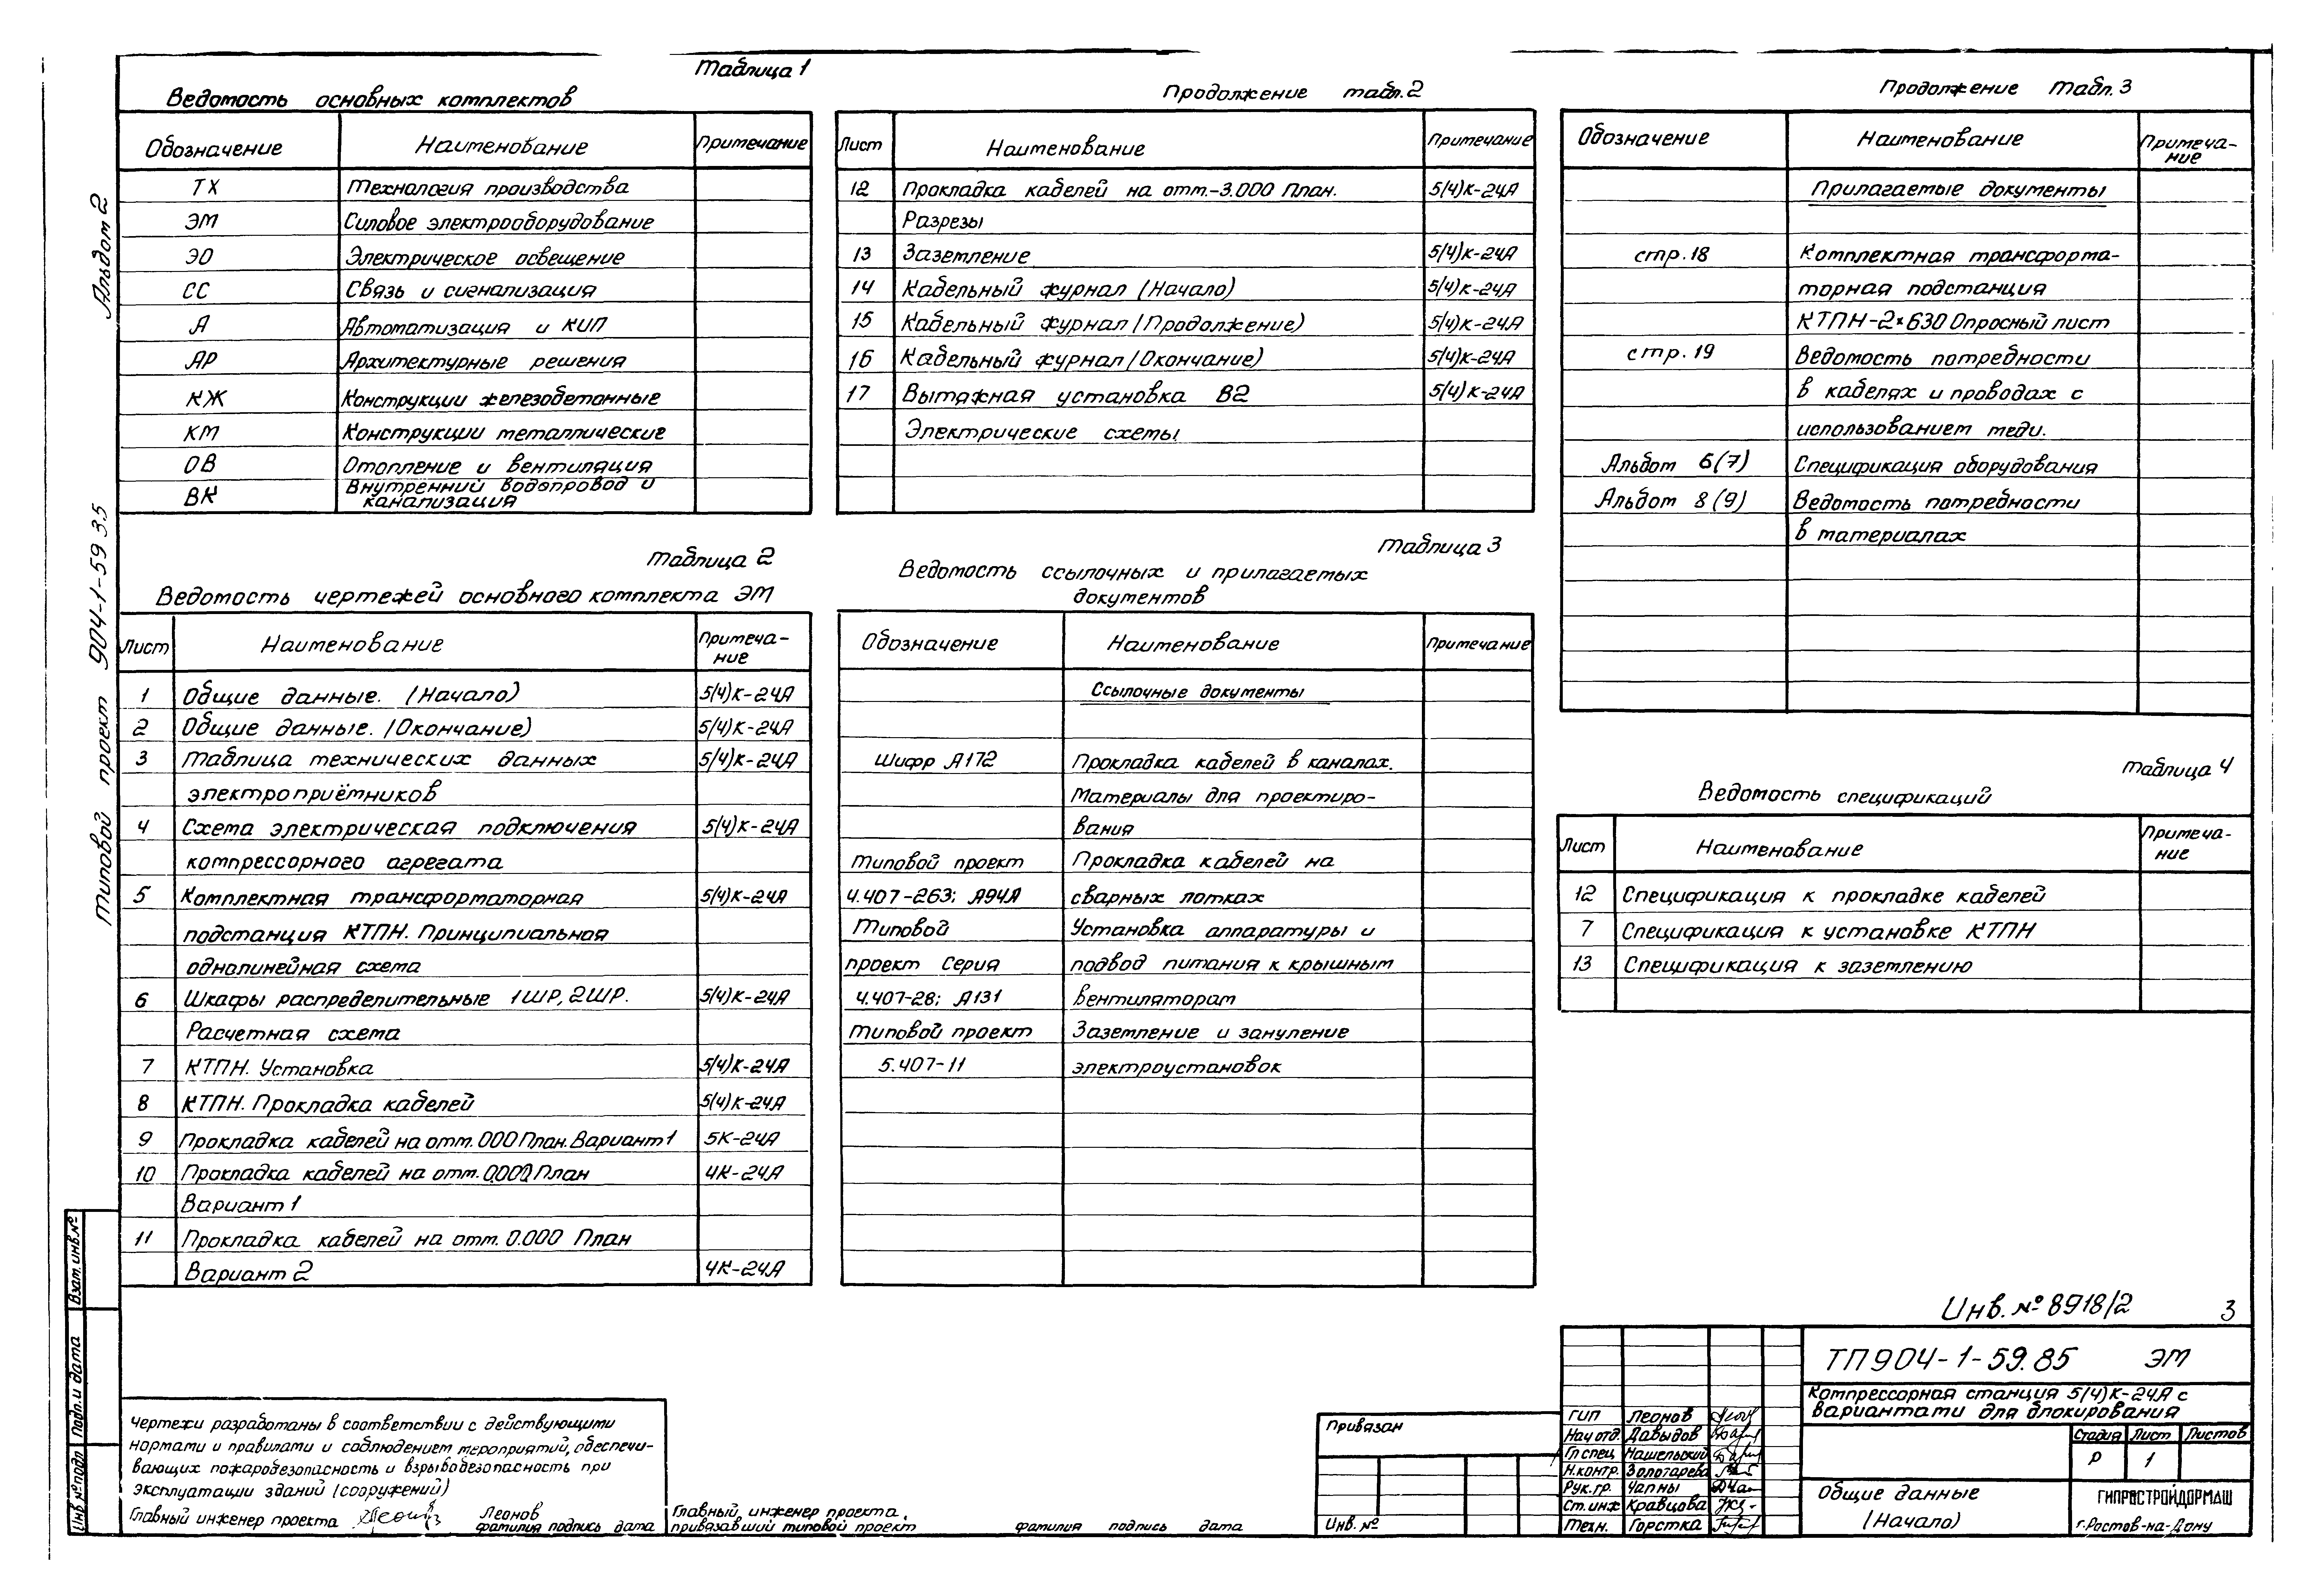 Таблица 1
Ведомость основных комплектов
Обозначение Наименование Примечание
ТХ Технология производства
ЭМ Силовое электрооборудование
ЭО Электрическое освещение
СС Связь и сигнализация
А Автоматизация и КИП
АР Архитектурные решения
КЖ Конструкции железобетонные
КМ Конструкции металлические
ОВ Отопление и вентиляция
ВК Внутренний водопровод и
канализация
Таблица 2
Ведомость чертежей основного комплекта ЭМ
Лист Наименование Примеча-
ние
1 Общие данные. (Начало) 5(4)К-24А
2 Общие данные. (Окончание) 5(4)К-24А
3 Таблица технических данных 5(4)К-24А
электроприёмников
4 Схема электрическая подключения 5(4)К-24А
компрессорного агрегата
5 Комплектная трансформаторная 5(4)К-24А
подстанция КТПН. Принципиальная
однолинейная схема
6 Шкафы распределительные 1ШР, 2ШР. 5(4)К-24А
Расчетная схема
7 КТПН. Установка 5(4)К-24А
8 КТПН. Прокладка кабелей 5(4)К-24А
9 Прокладка кабелей на отм. 000 План. Вариант 1 5К-24А
10 Прокладка кабелей на отм. 0.000 План 4К-24А
Вариант 1
11 Прокладка кабелей на отм. 0.000 План
Вариант 2 4К-24А
Продолжение табл. 2
Лист Наименование Примечание
12 Прокладка кабелей на отм.-3.000 План. 5(4)К-24А
Разрезы
13 Заземление 5(4)К-24А
14 Кабельный журнал (Начало) 5(4)К-24А
15 Кабельный журнал (Продолжение) 5(4)К-24А
16 Кабельный журнал (Окончание) 5(4)К-24А
17 Вытяжная установка В2 5(4)К-24А
Электрические схемы
Таблица 3
Ведомость ссылочных и прилагаемых
документов
Обозначение Наименование Примечание
Ссылочные документы
Шифр А172 Прокладка кабелей в каналах.
Материалы для проектиро-
вания
Типовой проект Прокладка кабелей на
4.407-263; А94А сварных лотках
Типовой Установка аппаратуры и
проект Серия подвод питания к крышным
4.407-28; А131 вентиляторам
Типовой проект Заземление и зануление
5.407-11 электроустановок
Продолжение табл. 3
Обозначение Наименование Примеча-
ние
Прилагаемые документы
стр. 18 Комплектная трансформа-
торная подстанция
КТПН-2×630 Опросный лист
стр. 19 Ведомость потребности
в кабелях и проводах с
использованием меди.
Альбом 6(7) Спецификация оборудования
Альбом 8(9) Ведомость потребности
в материалах
Таблица 4
Ведомость спецификаций
Лист Наименование Примеча-
ние
12 Спецификация к прокладке кабелей
7 Спецификация к установке КТПН
13 Спецификация к заземлению
Альбом 2
Типовой проект 904-1-59 35
Взам. инв. №
Подп. и дата
Инв № подл
Чертежи разработаны в соответствии с действующими
нормами и правилами и соблюдением мероприятий, обеспечи-
вающих пожаробезопасность и взрывобезопасность при
эксплуатации зданий (сооружений)
Главный инженер проекта Леонов
фамилия подпись дата
Главный инженер проекта,
привязавший типовой проект фамилия подпись дата
Привязан
Инв. №
Инв. № 8918/2 3
ТП904-1-59.85 ЭМ
Компрессорная станция 5(4)К-24А с
вариантами для блокирования
ГИП Леонов
Нач отд. Давыдов
Гл спец Нашельский
Н.контр. Золотарева
Рук.гр. Чапны
Ст. инж Кравцова
Техн. Горстка
Стадия Лист Листов
Р 1
Общие данные
(Начало)
ГИПРОСТРОЙДОРМАШ
г.Ростов-на-Дону